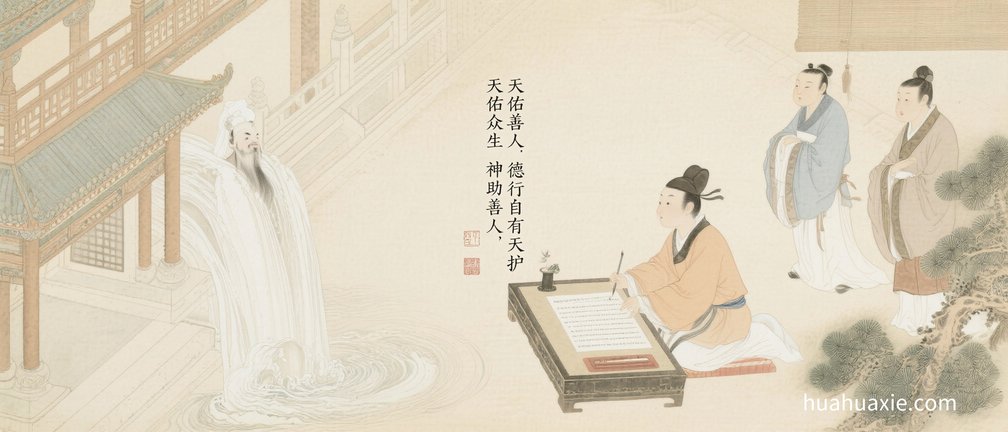 天佑善人，德行自有天护
天佑众生 神助善人，
huahuaxie.com